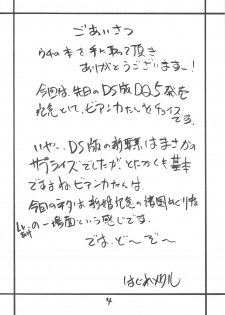 ごあいさつ
ウチの本を手に取って頂き
ありがとうございますー!
今回は、先日のDS版DQ5発売
記念として、ビアンカたんをチョイス
です。
いやー、DS版の新要素はまさかの
サプライズでしたが、とにかくも基本
ですよね、ビアンカたんは。
今回のネタは新婚記念の諸国めぐり
の一場面という感じです。
では、ど〜ぞ〜
はじめメタル
4